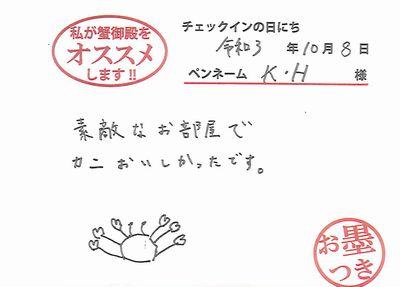 私が蟹御殿を
オススメ
します!!
チェックインの日にち
令和3年10月8日
ペンネーム K・H 様
素敵なお部屋で
カニおいしかったです。
お墨
つき